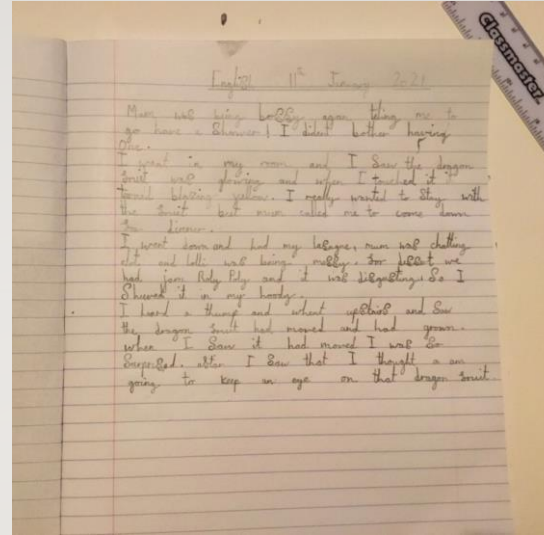 Classmaster
English 11th January 2021
Mum was being bossy again teling me to
go have a Shower! I dident bother having
one.
I went in my room and I Saw the dragon
fruit was glowing and when I touched it it
turned blazing yellow. I really wanted to Stay with
the fruit but mum called me to come down
for dinner.
I went down and had my lasagne, mum was chatting
and lolli was being messy. for we
had jam Roly Poly and it was disgusting. So I
Shoved it in my hoody.
I heard a thump and whent upstairs and Saw
the dragon fruit had moved and had grown.
when I Saw it had moved I was So
Surprised. after I Saw that I thought a am
going to keep an eye on that dragon fruit.